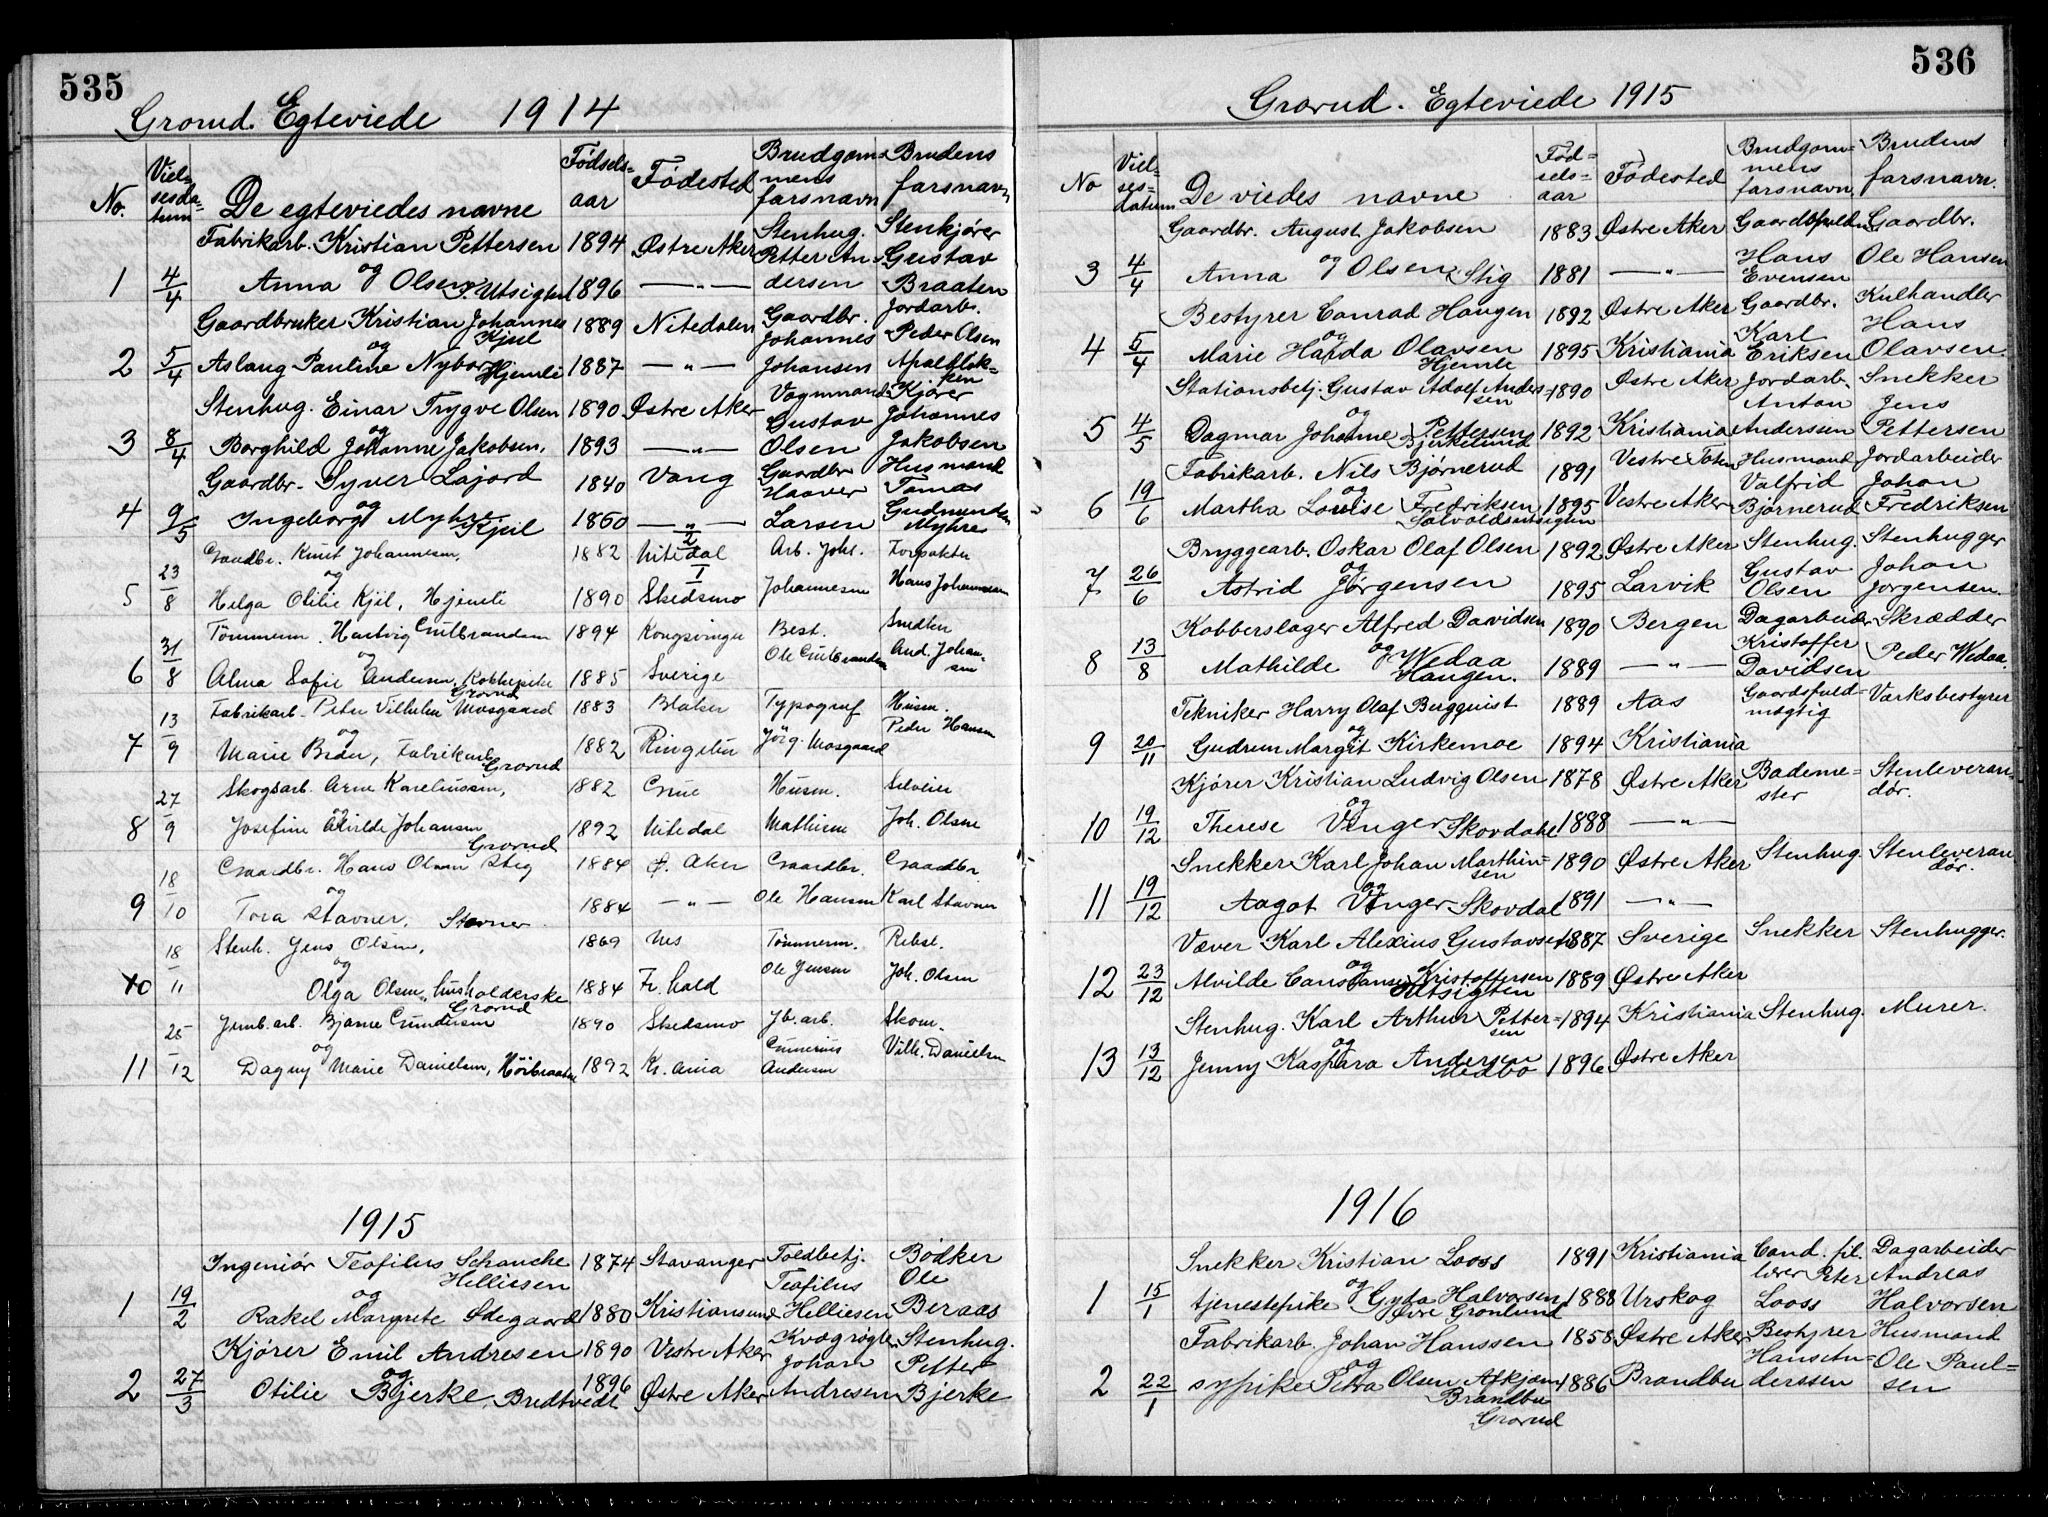 535
Grorud. Egteviede 1914
No. Vielsesdatum De egteviedes navne Fødselsaar Fødested Brudgommens farsnavn Brudens farsnavn
Fabrikarb. Kristian Pettersen 1894 Østre Aker Stenhug. Stenkjører
og Petter An- Gustav
1 4/4 Anna Olsen, Utsigten 1896 —"— dersen Braaten
Gaardbruker Kristian Johannes Kjul 1889 Nitedalen Gaardbr. Jordarb.
og Johannes Peder Olsen
2 5/4 Aslaug Pauline Nyborg Hjemli 1887 —"— Johansen Apaldløkken
Stenhug. Einar Trygve Olsen 1890 Østre Aker Vognmand Kjører
og Gustav Johannes
3 8/4 Borghild Johanne Jakobsen. 1893 —"— Olsen Jakobsen
Gaardbr. Syver Lajord 1840 Vang Gaardbr Husmand
og Haaver Tomas
4 9/5 Ingeborg Myhre Kjul 1860 —"— Larsen Gudmundsen Myhre
Gaardbr. Knut Johannesen, 1882 Nitedal Arb. Johs. Forpakter
og
5 23/8 Helga Otilie Kjil, Hjemli 1890 Skedsmo Johannesen Hans Johannesen
Tömmerm. Hartvig Gulbrandsen 1894 Kongsvinger Best. Snedker
og Ole Gulbrandsen And. Johansen
6 31/8 Alma Sofie Andersen, Kokkepike Grorud 1885 Sverige
Fabrikarb. Peter Vilhelm Mosgaard 1883 Blaker Typograf Husm.
og Peder Hansen
7 13/9 Marie Broen, Fabrikarb. Grorud 1882 Ringebu Jörg. Mosgaard
Skogsarb. Arne Kareliussen, 1882 Grue Husm. Selveier
og
8 27/9 Josefine Alvilde Johansen Grorud 1892 Nitedal Mathisen Joh. Olsen
Gaardbr. Hans Olsen Stig 1884 Ø. Aker Gaardbr. Gaardbr.
og
9 18/10 Tora Stavner, Stovner 1884 —"— Ole Hansen Karl Stavner
Stenh. Jens Olsen, 1869 Nes Tömmerm. Rebsl.
og
10 18/11 Olga Olsen, husholderske Grorud 1884 Fr.hald Ole Jensen Joh. Olsen
Jernb.arb. Bjarne Gundersen 1890 Skedsmo Jb.arb. Skom.
og
11 25/12 Dagny Marie Danielsen, Höibraaten 1892 Kr.ania Gunerius Andersen Vilh. Danielsen
1915
Ingeniør Teofilus Schanche Helliesen 1874 Stavanger Toldbetj. Bødker
og Teofilus Ole
1 19/2 Rakel Margrete Ødegaard 1880 Kristiansund Helliesen Beraas
Kjører Emil Andresen 1890 Vestre Aker Kvægrøgter Stenhug.
og Johan Petter
2 27/3 Otilie Bjerke, Bredtvedt 1896 Østre Aker Andresen Bjerke
536
Grorud. Egteviede 1915
No Vielsesdatum De viedes navne Fødselsaar Fødested Brudgommens farsnavn Brudens farsnavn.
Gaardbr. August Jakobsen 1883 Østre Aker Gaardbr.
og Hans
3 4/4 Anna Olsen, Stig 1881 —"— Evensen Ole Hansen
Bestyrer Conrad Haugen 1892 Østre Aker Gaardbr. Kulhandler
og Karl Hans
4 5/4 Marie Harda Olavsen Hjemli 1895 Kristiania Eriksen Olavsen.
Stationsbetj. Gustav Adolf Andersen 1890 Østre Aker Jordarb. Snekker
og Anton Jens
5 4/5 Dagmar Johanne Pettersen Bjerkelund 1892 Kristiania Anderssen Pettersen
Fabrikarb. Nils Bjørnerud 1891 Vestre Toten Husmand Jordarbeider
og Valfrid Johan
6 19/6 Martha Lovise Fredriksen Solvoldsensigten 1895 Vestre Aker Bjørnerud Fredriksen
Bryggearb. Oskar Olaf Olsen 1892 Østre Aker Stenhug. Stenhugger
og Gustav Johan
7 26/6 Astrid Jørgensen 1895 Larvik Olsen Jørgensen.
Kobberslager Alfred Davidsen 1890 Bergen Dagarbeider Skrædder
og Kristoffer
8 13/8 Mathilde Wedaa Haugen. 1889 —"— Davidsen Peder Wedaa.
Tekniker Harry Olaf Bergquist 1889 Aas Gaardsfuldmægtig Værksbestyrer
og
9 20/11 Gudrun Margit Kirkemoe 1894 Kristiania
Kjører Kristian Ludvig Olsen 1878 Østre Aker Bademester Stenleverandør.
og
10 19/12 Therese Vinger Skovdahl 1888 —"—
Snekker Karl Johan Marthinsen 1890 Østre Aker Stenhug. Stenleverandør.
og
11 19/12 Aagot Vinger Skovdal 1891 —"—
Væver Karl Alexius Gustavsen 1887 Sverige Snekker Stenhugger.
og
12 23/12 Alvilde Constanse Kristoffersen Utsigten 1889 Østre Aker
Stenhug. Karl Arthur Pettersen 1894 Kristiania Stenhug. Murer.
og
13 13/12 Jenny Kaspara Andersen Medbo 1896 Østre Aker
1916
Snekker Kristian Looss 1891 Kristiania Cand. fil. Dagarbeider
og lærer Peter Andreas
1 15/1 tjenestepike Gyda Halvorsen Øvre Grønlund 1888 Urskog Looss Halvorsen
Fabrikarb. Johan Hanssen 1858 Østre Aker Bestyrer Husmand
og Hans An- Ole Paul-
2 22/1 sypike Petra Olsen Askjum Brandbu Grorud 1886 Brandbu derssen sen